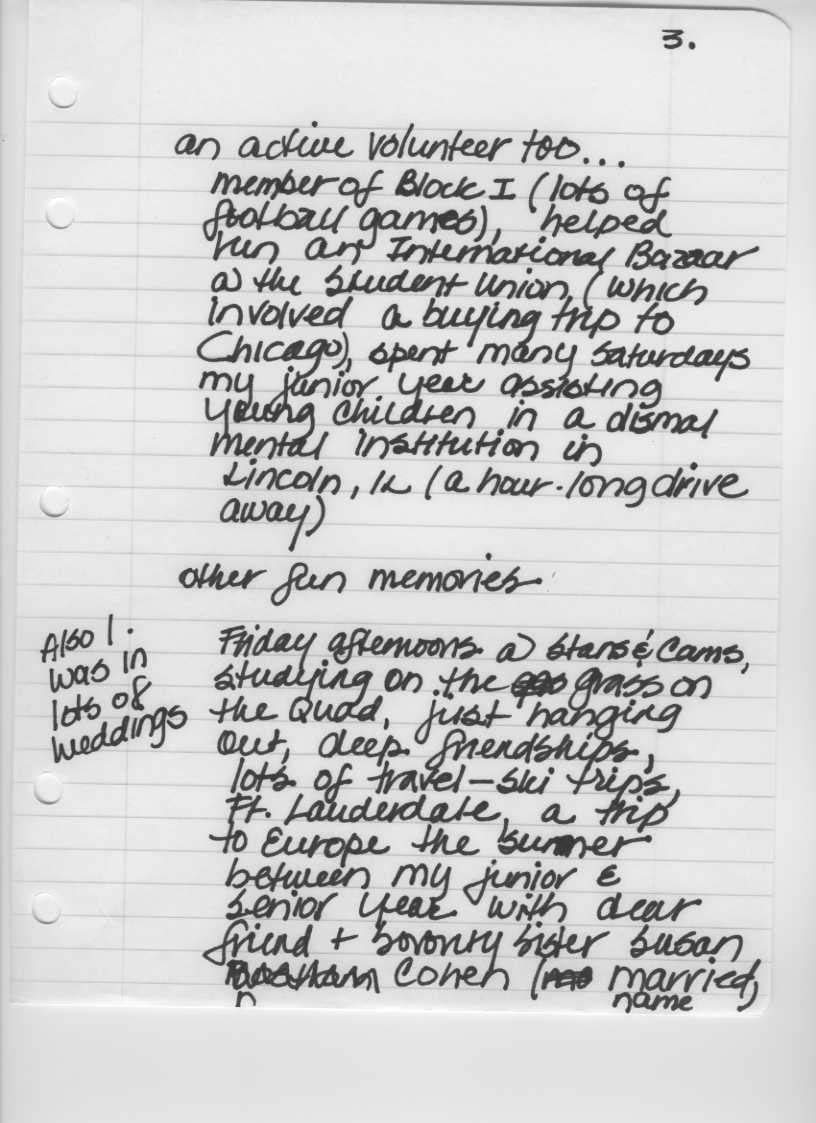 3.
an active volunteer too...
member of Block I (lots of
football games), helped
run an International Bazaar
@ the Student Union (which
involved a buying trip to
Chicago), spent many Saturdays
my junior year assisting
young children in a dismal
mental institution in
Lincoln, IL (a hour-long drive
away)
other fun memories.
Also I
was in
lots of
weddings
Friday afternoons @ Stans & Cams,
studying on the grass on
the Quad, just hanging
out, deep friendships,
lots of travel - ski trips,
Ft. Lauderdale, a trip
to Europe the summer
between my junior &
senior year with dear
friend + sorority sister Susan
Cohen (married
name)